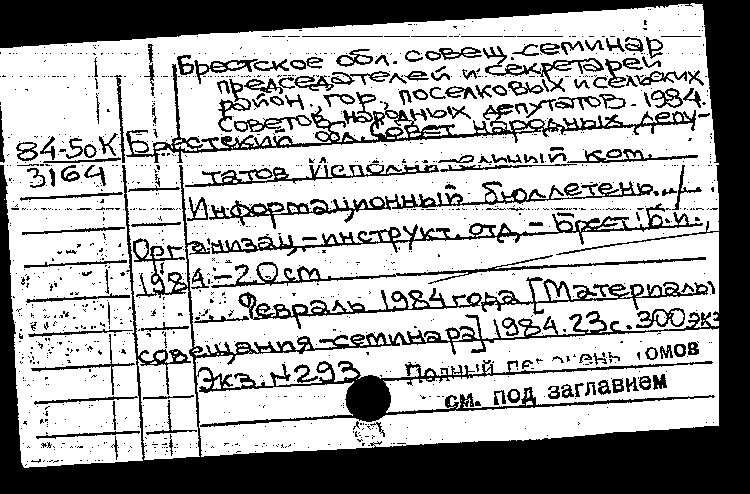 Брестское обл. совещ-семинар
председателей и секретарей
район., гор., поселковых и сельских
Советов народных депутатов. 1984.
84-50К Брестский обл. Совет народных депу-
3164 татов. Исполнительный ком.
Информационный бюллетень.....
Организац.-инструкт. отд. - Брест: Б.и.,
1984. - 20 ст.
Февраль 1984 года [Материалы
совещания-семинара]. 1984. 23 с. 300 экз
Экз. №293 Полный перечень томов
см. под заглавием